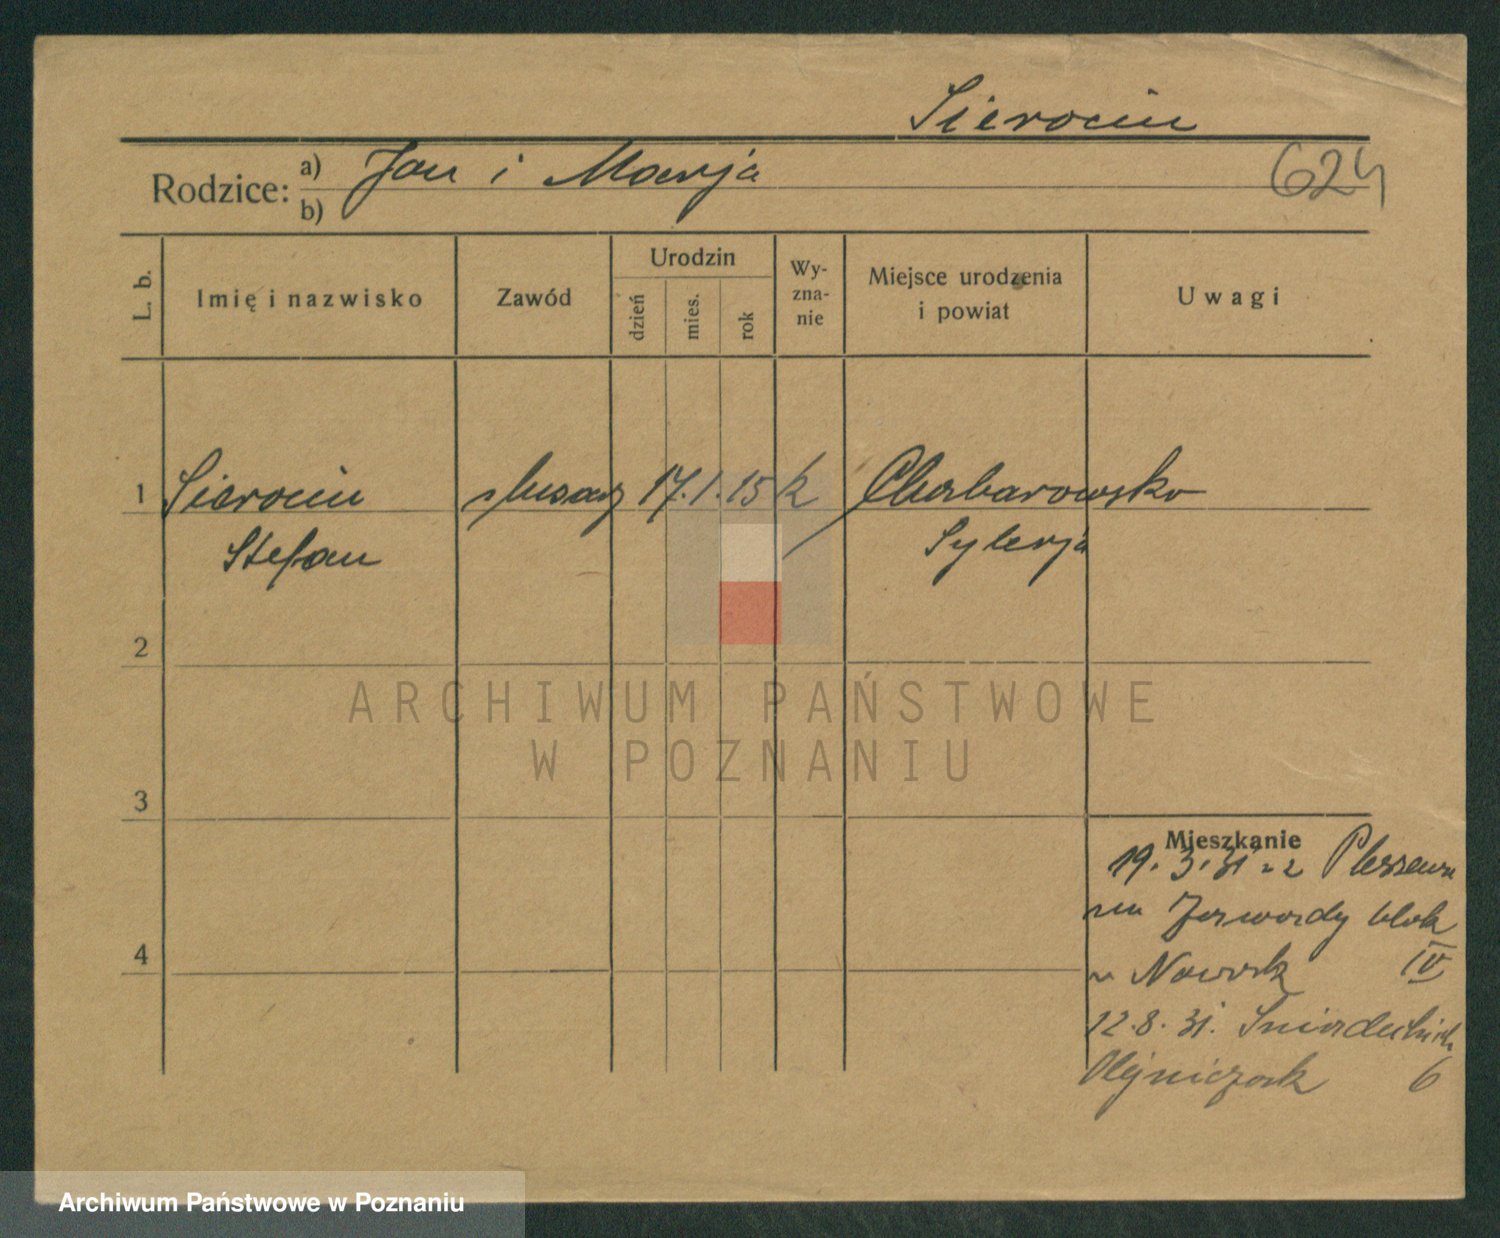 Sierociu
Rodzice: a) Jan i Marja
b)
624
L. b.
Imię i nazwisko
Zawód
Urodzin
dzień
mies.
rok
Wy-
zna-
nie
Miejsce urodzenia
i powiat
Uwagi
1 Sierociu ślusarz 17. 1. 15 k
Stefan Syberja
2
ARCHIWUM PAŃSTWOWE
W POZNANIU
3
Mieszkanie
19. 3. 31 z Pleszewa
na Jarwardy blok
u Nowak IV
12.8.31. Śniadeckich
Olejniczak 6
4
Archiwum Państwowe w Poznaniu